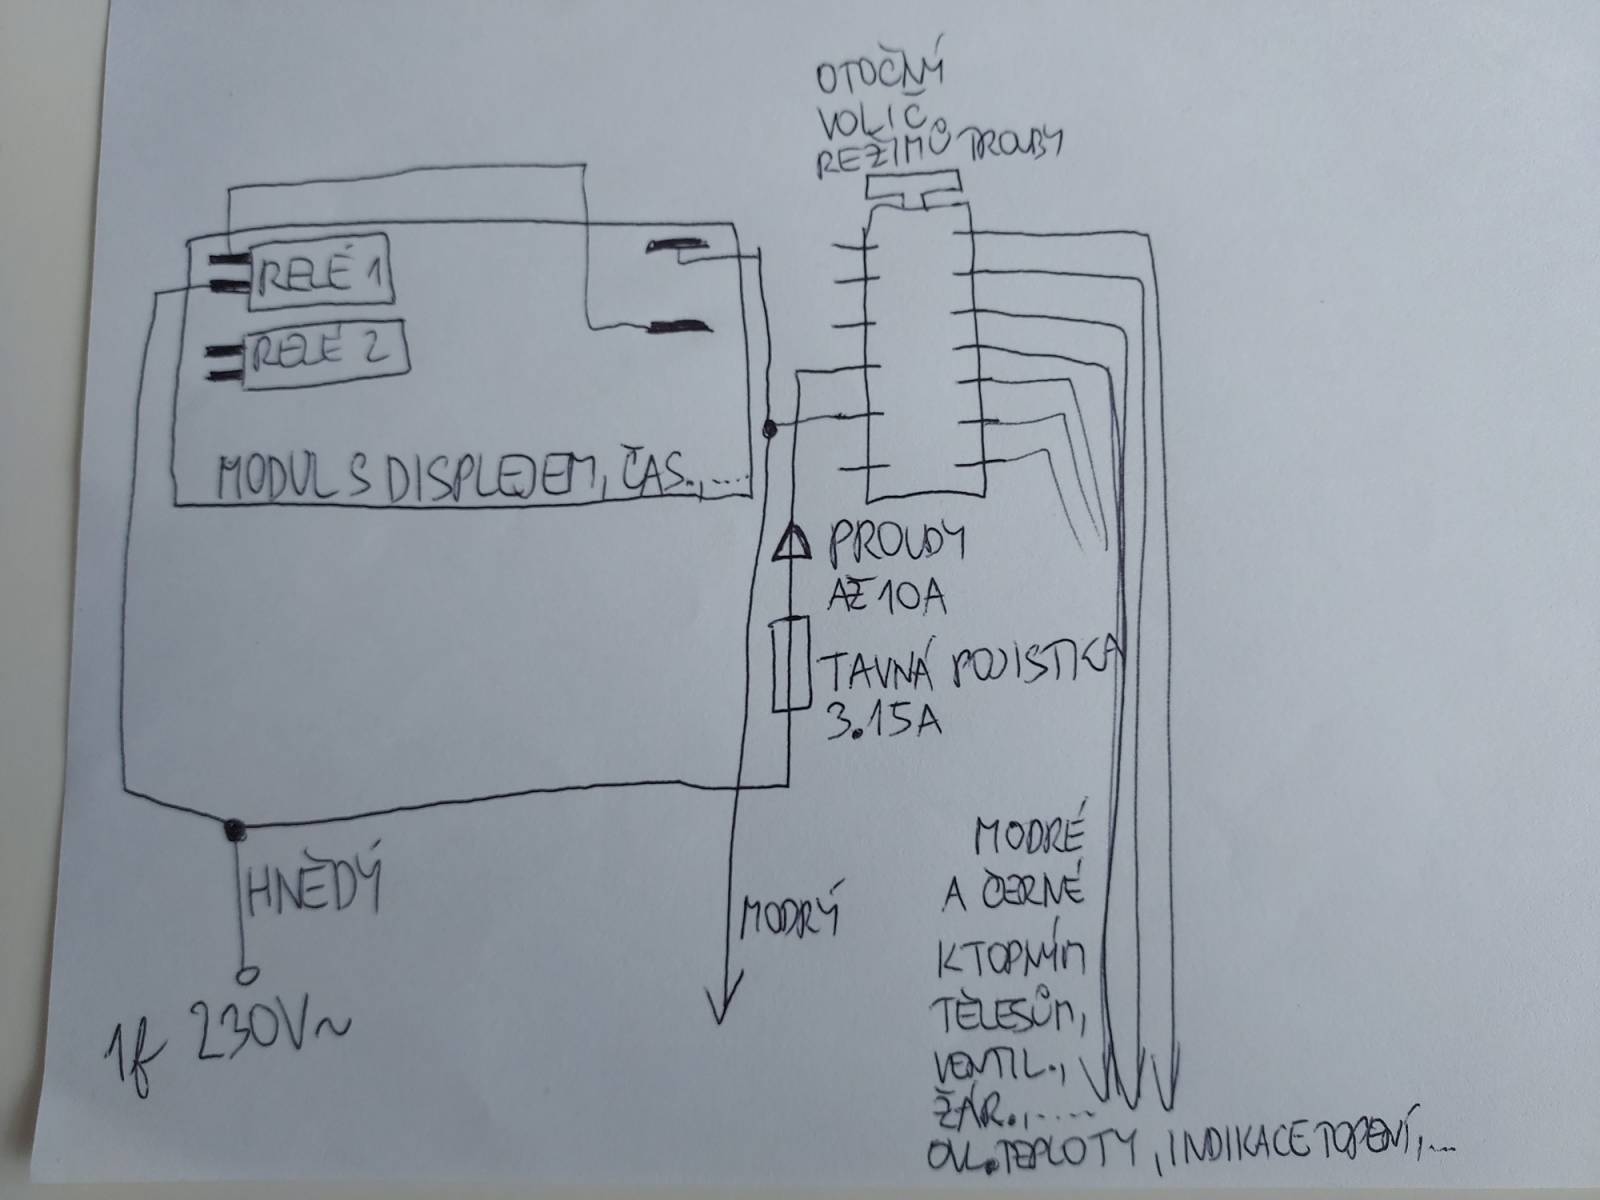 OTOČNÝ
VOLIČ
REŽIMŮ TROUBY
RELÉ 1
RELÉ 2
MODUL S DISPLEJEM, ČAS.,....
PROUDY
AŽ 10A
TAVNÁ POJISTKA
3.15A
HNĚDÝ
MODRÝ
1f 230V~
MODRÉ
A ČERNÉ
K TOPNÝM
TĚLESŮM,
VENTIL.,
ŽÁR.,.....
OVL. TEPLOTY, INDIKACE TOPENÍ,...